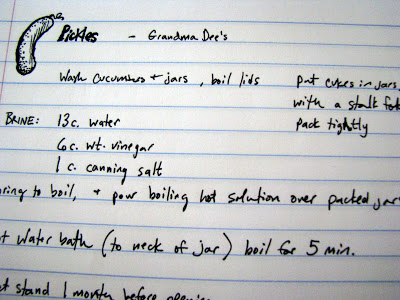 Pickles - Grandma Dee's
Wash cucumbers + jars, boil lids
put cukes in jars,
with a stalk
pack tightly
BRINE: 13 c. water
6 c. wt. vinegar
1 c. canning salt
to boil, + pour boiling hot solution over packed
water bath (to neck of jar) boil for 5 min.
stand 1 month before